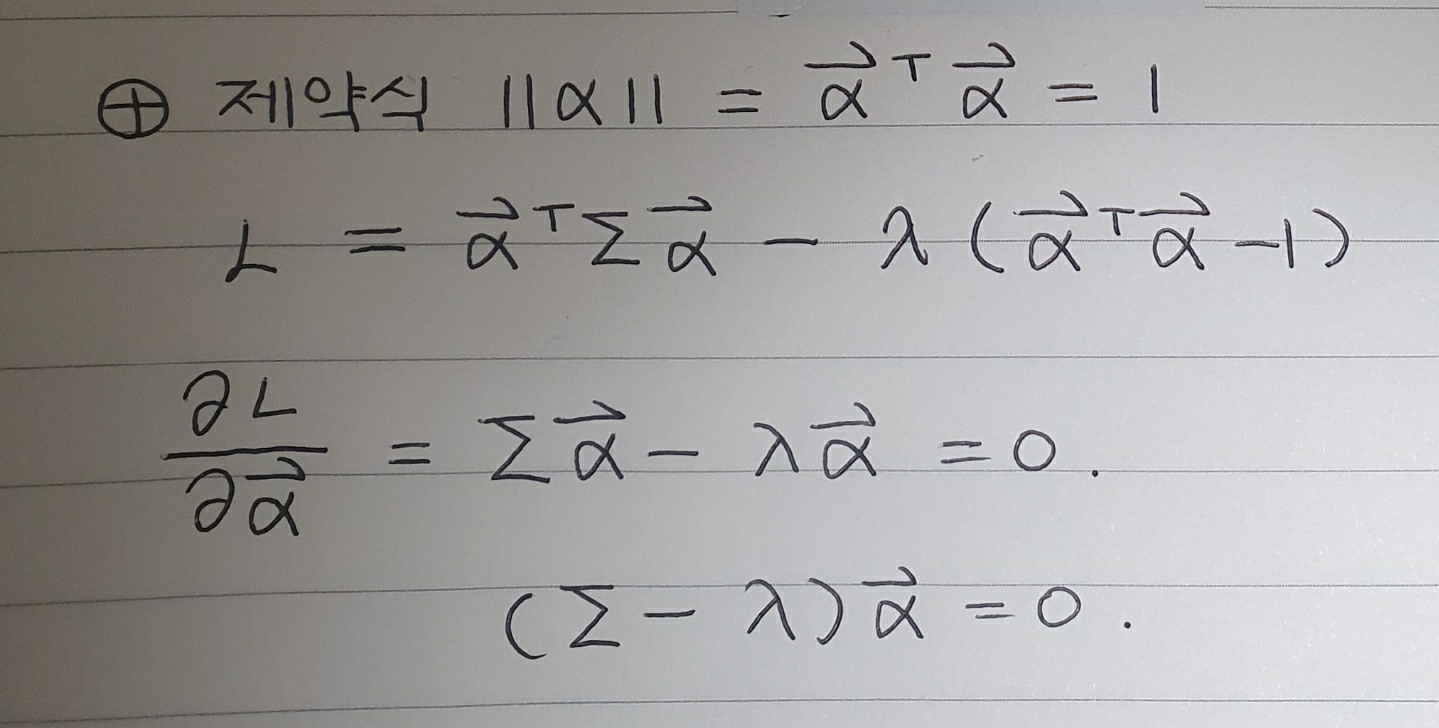 ⊕ 제약식 ||α|| = α⃗ᵀ α⃗ = 1
L = α⃗ᵀ Σ α⃗ - λ (α⃗ᵀ α⃗ - 1)
∂L/∂α⃗ = Σ α⃗ - λ α⃗ = 0.
(Σ - λ) α⃗ = 0.